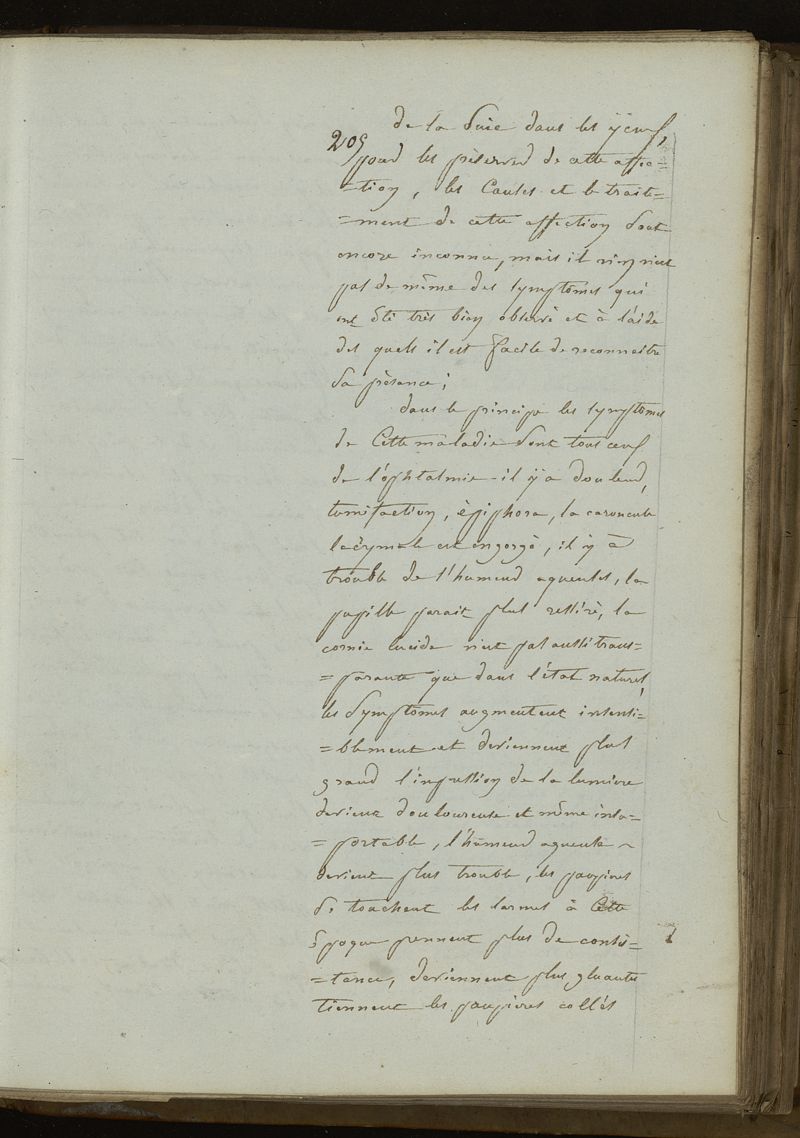 de la suie dans les yeux,
205
pour les preserver de cette affec=
=tion, les Causes et le traite=
=ment de cette affection sont
encore inconnu, mais il n'en n'est
pas de même des symptomes qui
ont été très bien observé et à l'aide
des quels il est facile de reconnaitre
sa présance;
dans le principe les symptomes
de Cette maladie sont tous ceux
de l'ophtalmie - il y a douleur,
tumifaction, épiphora, la caroncule
lacrymale est engorgé, il y à
trouble de l'humeur aqueuses, la
pupille parait plus ressiré, la
cornie lucide n'est pas aussi trans=
=parante que dans l'état naturel,
les symptomes augmentent insensi=
=blement et deviennent plus
grand l'impression de la lumiere
devient douloureuse et même insu=
=portable, l'humeur aqueuse
devient plus trouble, les paupieres
se touchent les larmes à Cette
époque prennent plus de consis=
=tance, deviennent plus gluantes
tiennent les paupieres collés